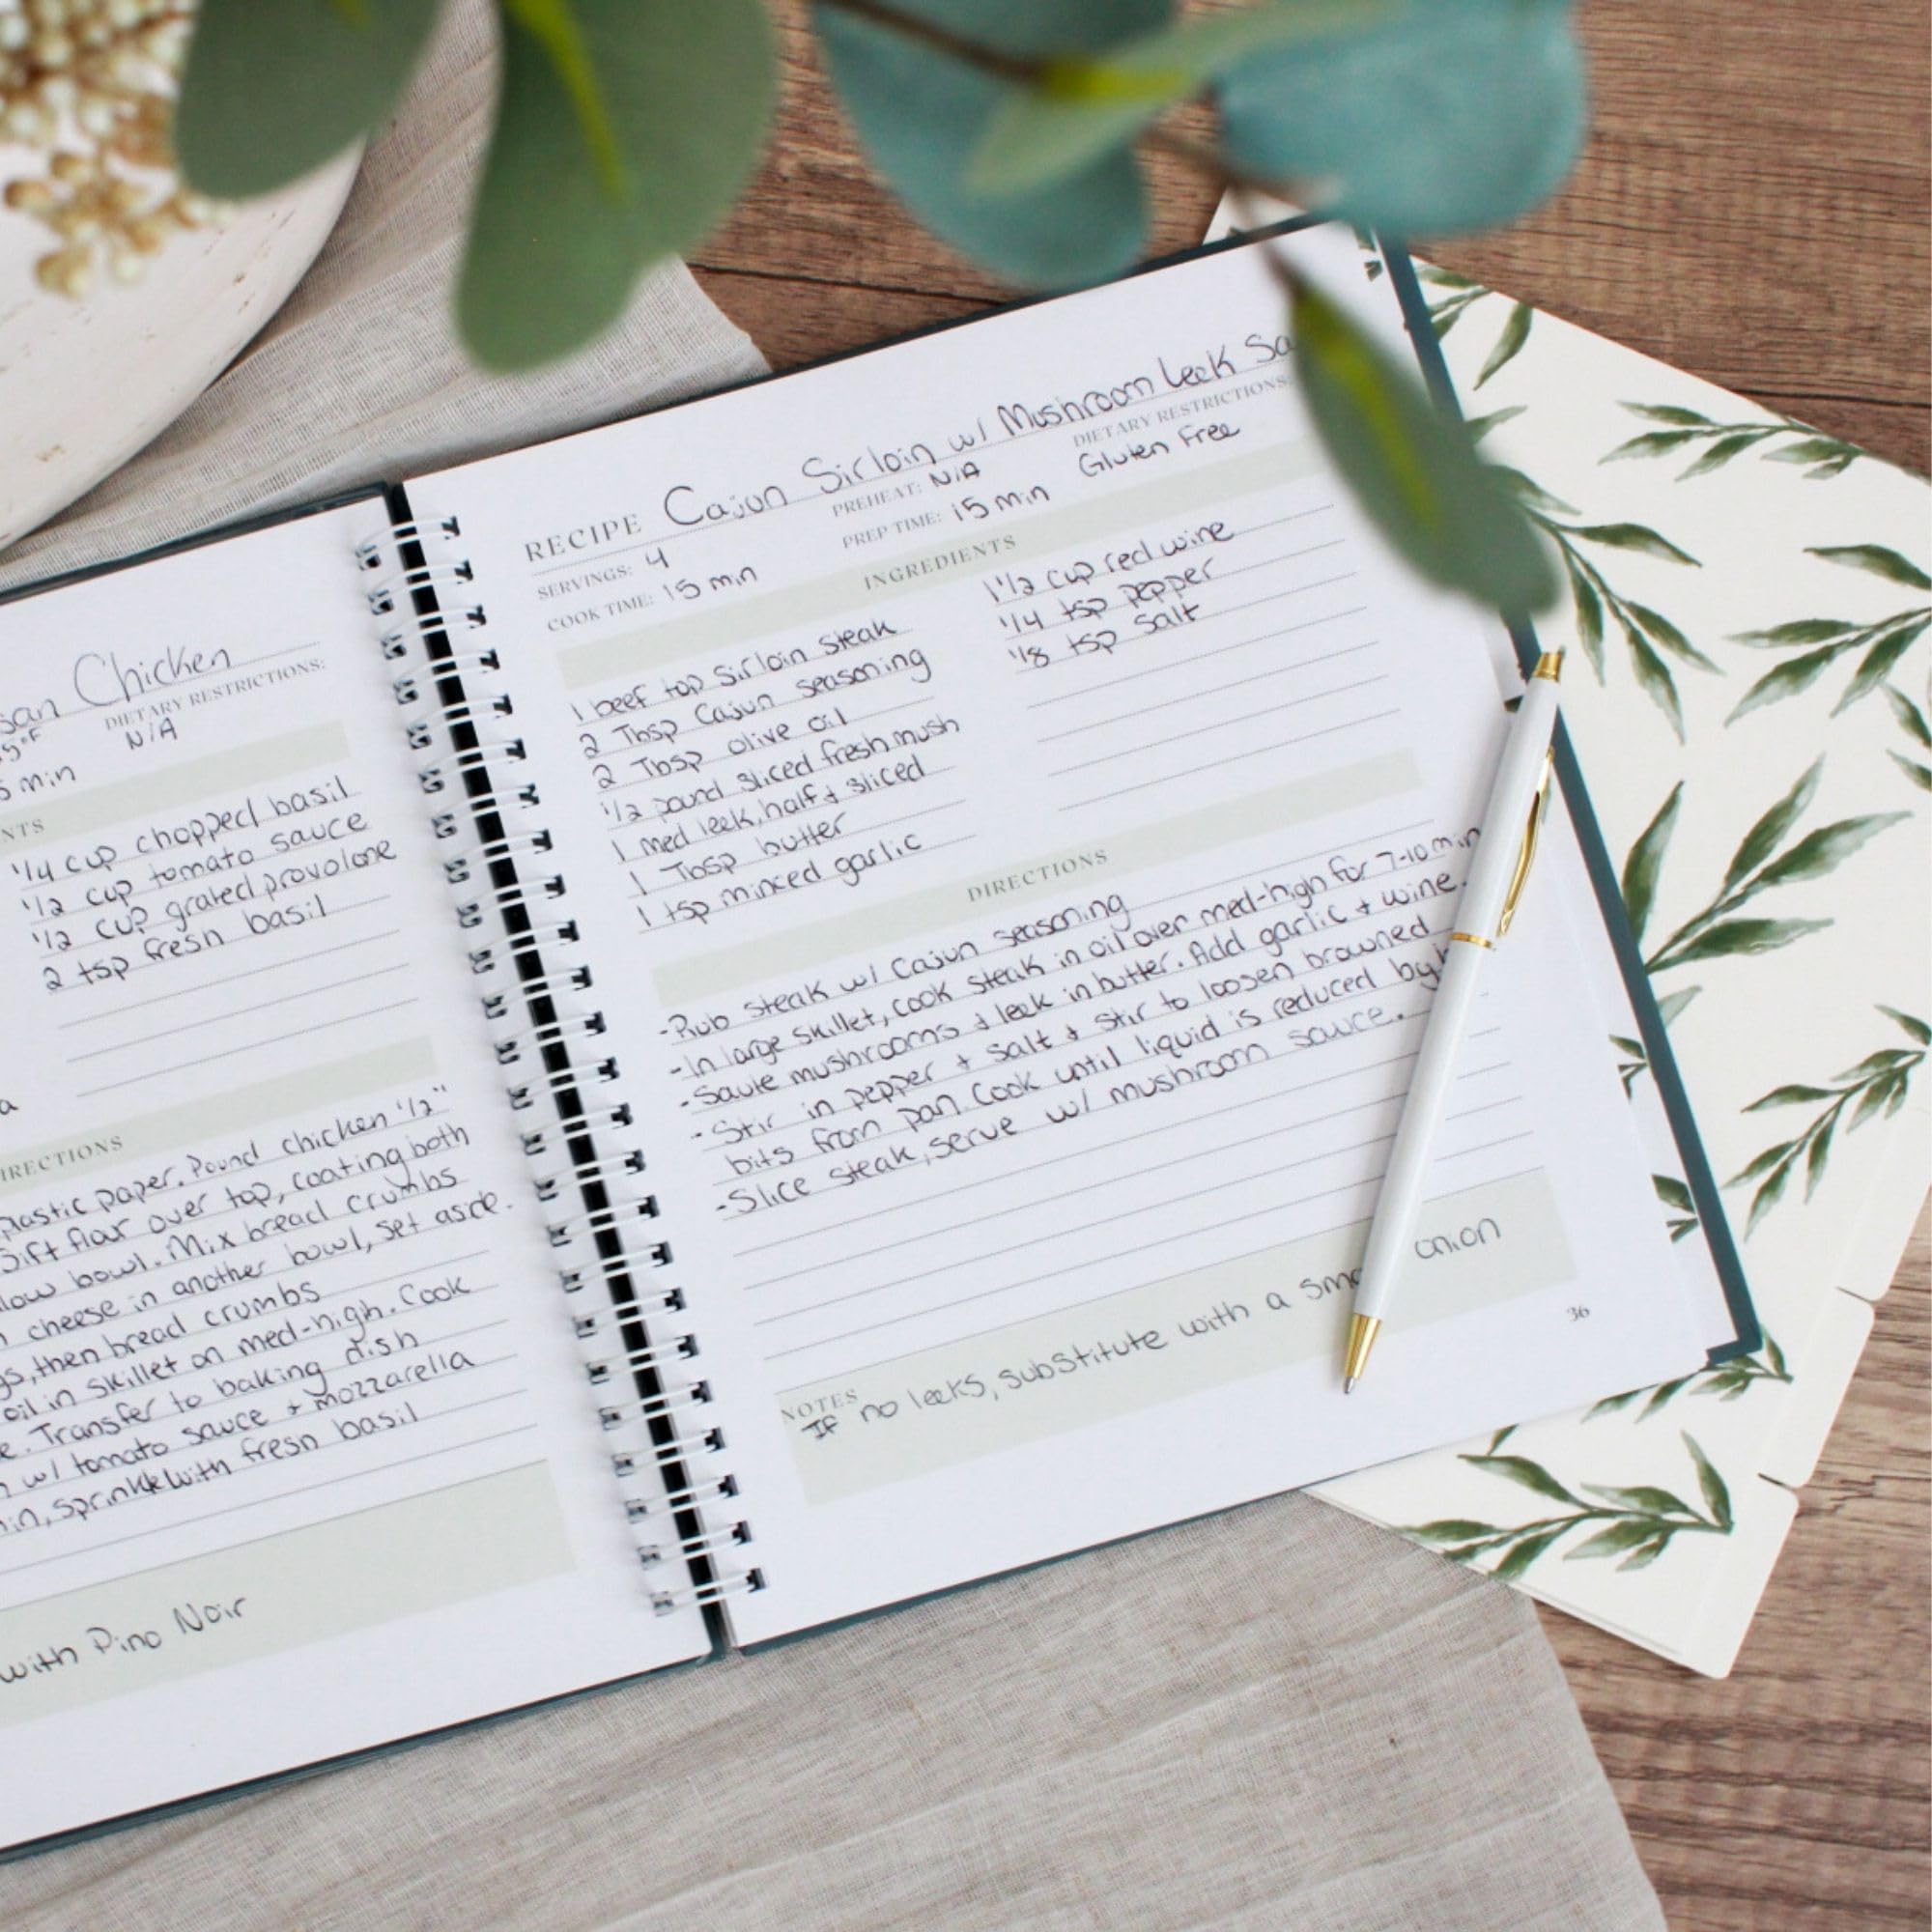 Chicken
DIETARY RESTRICTIONS:
N/A
min
1/4 cup chopped basil
1/2 cup tomato sauce
1/2 cup grated provolone
2 tsp fresh basil
plastic paper. Pound chicken 1/2"
Sift flour over top, coating both
bowl. Mix bread crumbs
cheese in another bowl, set aside.
then bread crumbs
oil in skillet on med-high. Cook
Transfer to baking dish
w/ tomato sauce + mozzarella
sprinkle with fresh basil
with Pino Noir
RECIPE Cajun Sirloin w/ Mushroom Leek
SERVINGS: 4
PREHEAT: N/A
DIETARY RESTRICTIONS:
COOK TIME: 15 min
PREP TIME: 15 min
Gluten Free
INGREDIENTS
1 beef top Sirloin Steak
2 Tbsp Cajun seasoning
2 Tbsp olive oil
1/2 pound sliced fresh mush
1 med leek, half & sliced
1 Tbsp butter
1 tsp minced garlic
1 1/2 cup red wine
1/4 tsp pepper
1/8 tsp salt
DIRECTIONS
-Rub steak w/ Cajun seasoning
-In large skillet, cook steak in oil over med-high for 7-10 min
-Saute mushrooms & leek in butter. Add garlic + wine.
-Stir in pepper + salt & stir to loosen browned
bits from pan. Cook until liquid is reduced by
-Slice steak, serve w/ mushroom sauce.
NOTES
If no leeks, substitute with a onion
36